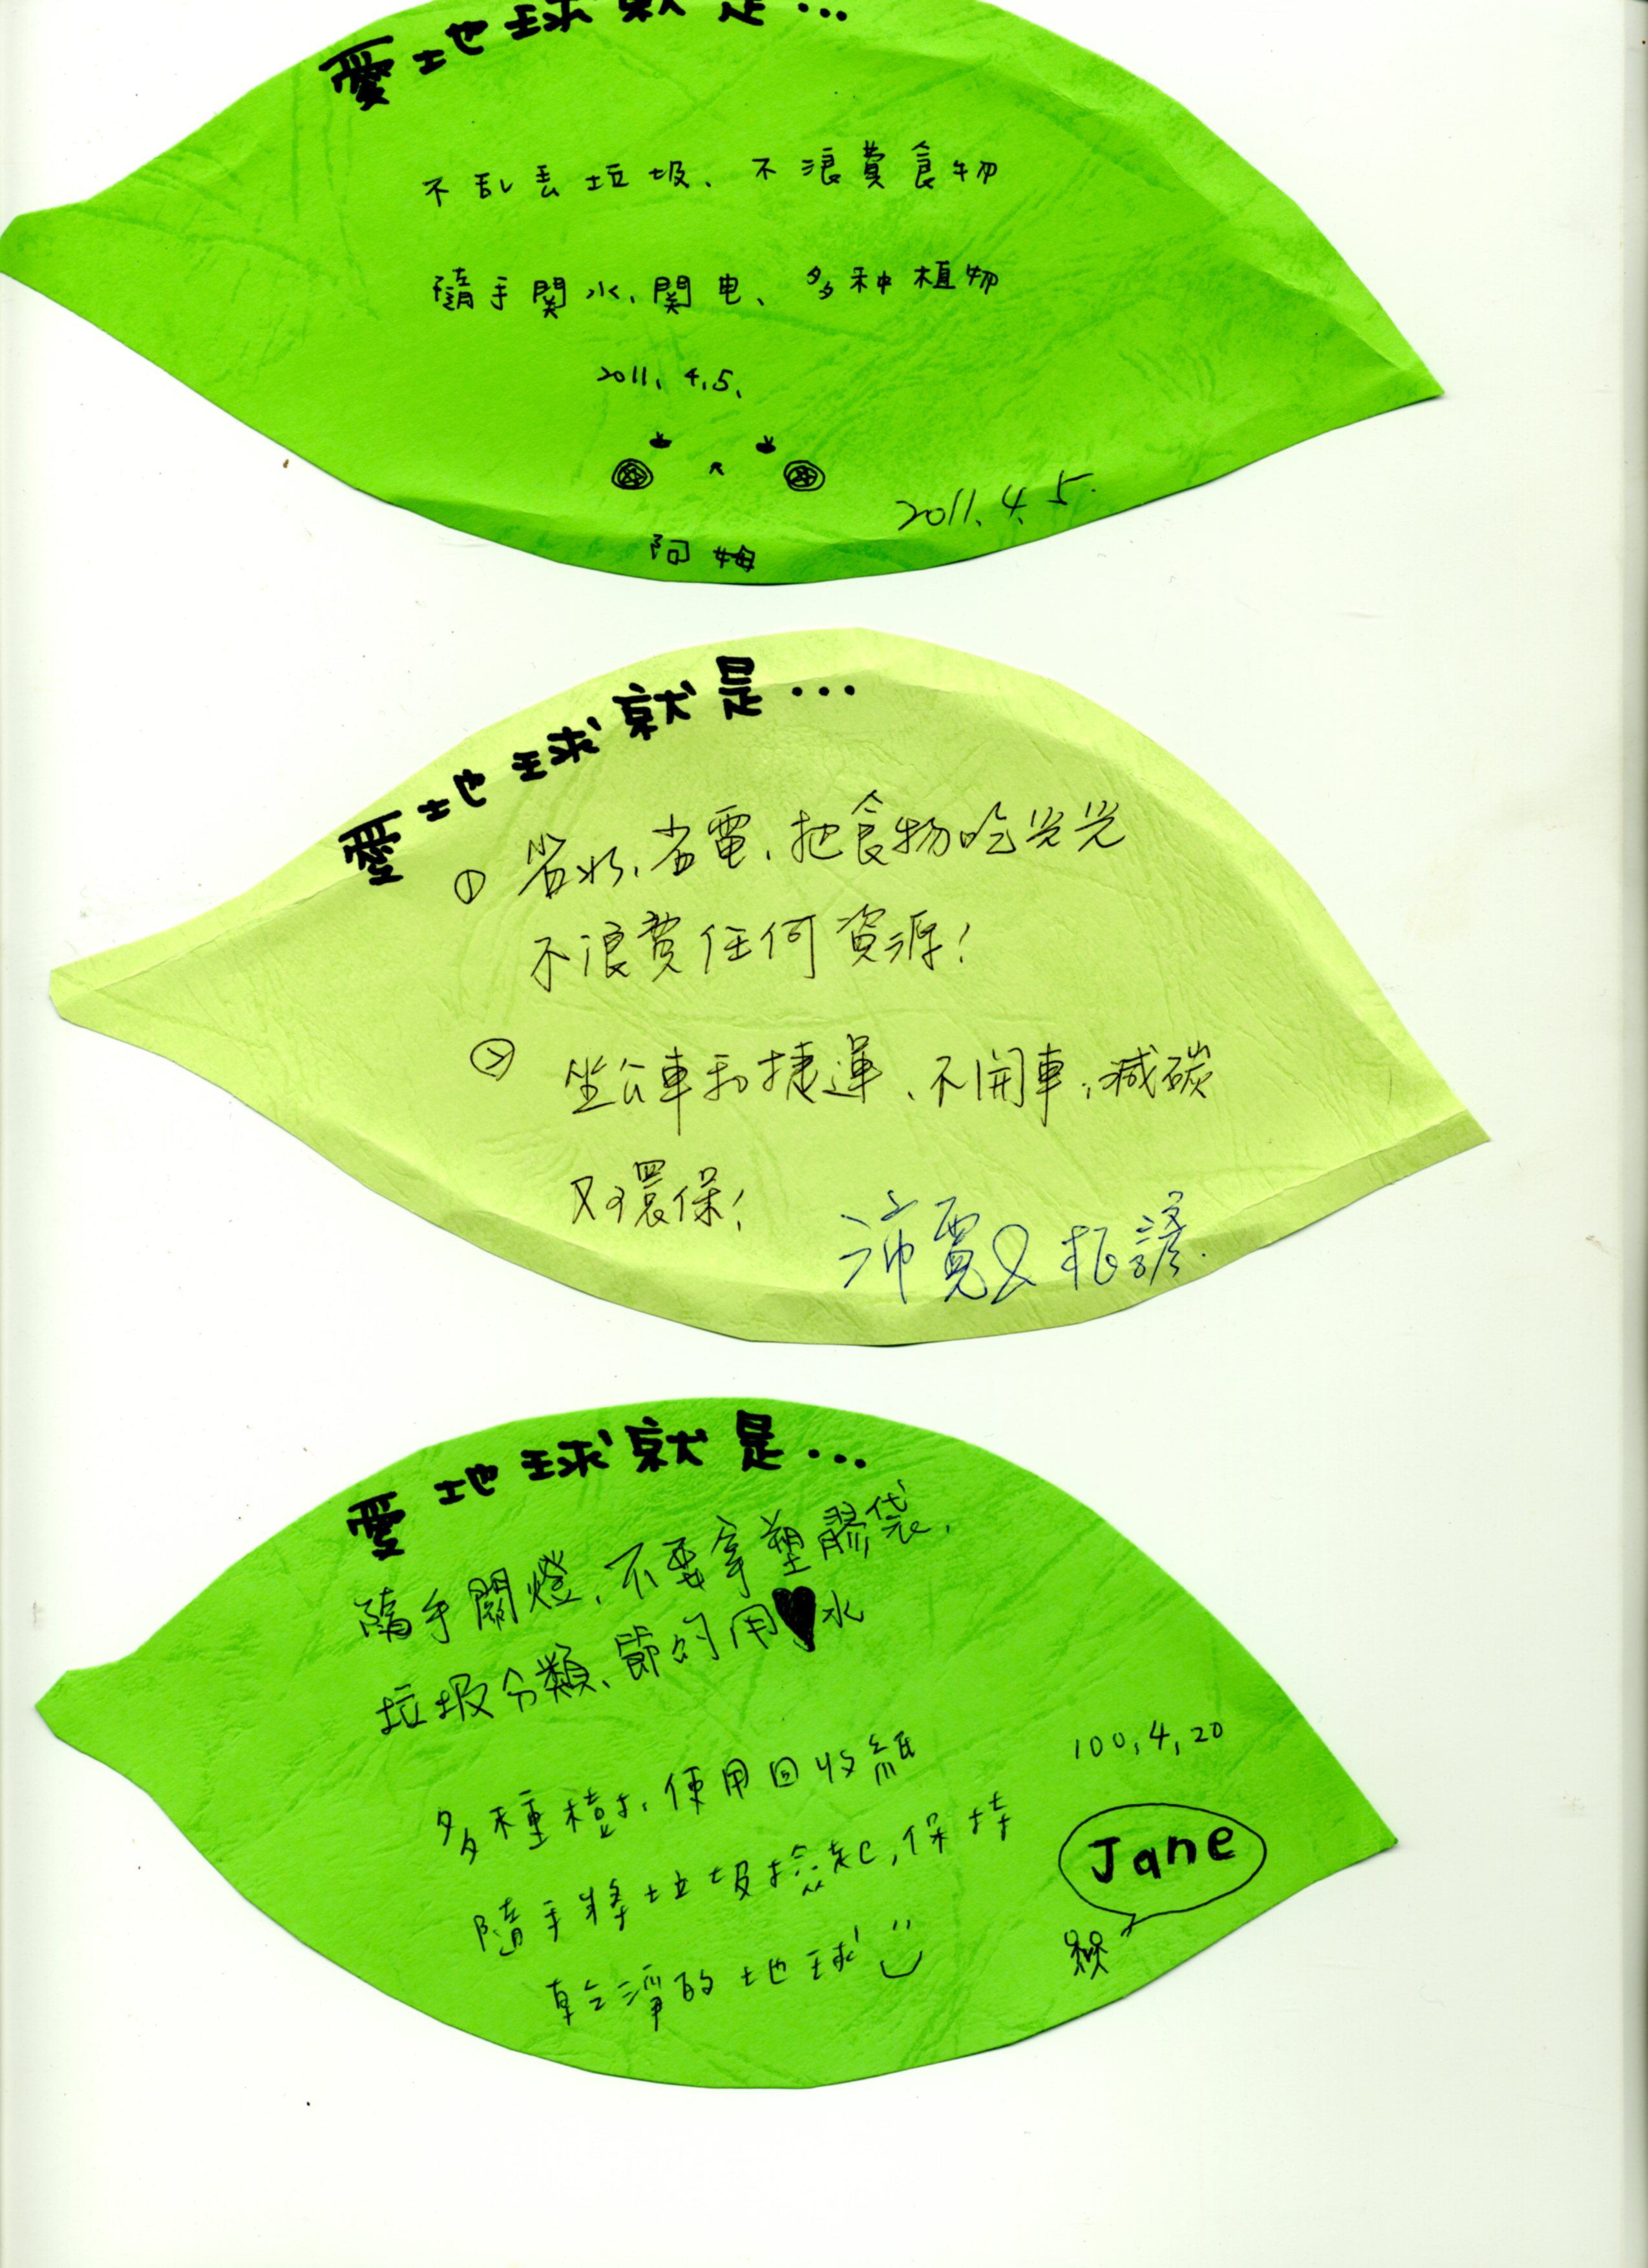 愛地球就是...
不乱丟垃圾、不浪費食物
隨手関水、関电、多种植物
2011.4.5.
2011.4.5.
阿梅
愛地球就是...
① 省水、省電、把食物吃光光
不浪費任何資源!
② 坐公車和捷運、不開車,減碳
又環保!
沛寬&柏諺.
愛地球就是...
隨手關燈、不要拿塑膠袋、
垃圾分類、節約用水
多種樹、使用回收紙
隨手將垃圾撿起,保持
乾淨的地球
100,4,20
Jane